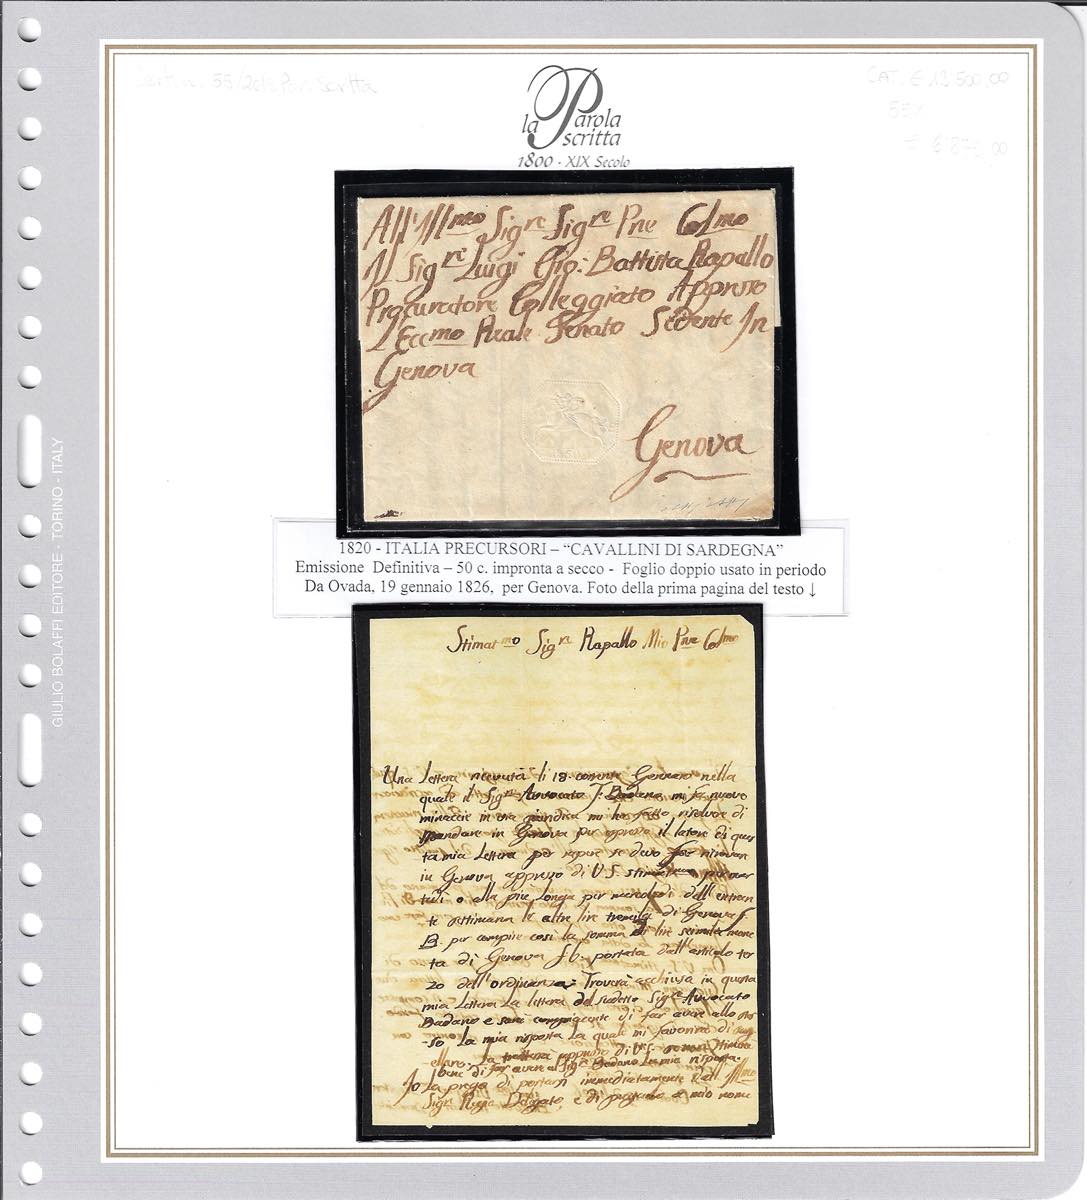 Cert. n. 55/2018 Par. Scritta
CAT. € 12500,00
55%
la Parola scritta
1800 - XIX Secolo
All'Illmo Sigre Sigre Pne Colmo
Il Sigre Luigi Gio: Battista Rapallo
Procuratore Colleggiato Appresso
L'Eccmo Reale Senato Sedente In
Genova
Genova
1820 - ITALIA PRECURSORI – “CAVALLINI DI SARDEGNA”
Emissione Definitiva – 50 c. impronta a secco - Foglio doppio usato in periodo
Da Ovada, 19 gennaio 1826, per Genova. Foto della prima pagina del testo ↓
Stimatmo Sigre Rapallo Mio Pne Colmo
Una Lettera ricevuta li 18. corrente Gennaro nella
quale il Sigre Avvocato Badano mi fa nuove
minaccie in via giuridica mi ha fatto risolvere di
mandare in Genova per appresso il latore di ques
ta mia Lettera per sapere se devo far ritrovare
in Genova appresso di V.S.
o alla più longa per mercoledi dell'entran
te settimana le altre lire tremila di Genova f.
B. per compire così la somma di lire seimila mone
ta di Genova f.b. portata dall'articolo ter
zo dell'ordinanza: Troverà acchiusa in questa
mia Lettera La lettera del sudetto Sigre Avvocato
Badano e sarà compiacente di far avere allo stes
so La mia risposta La quale mi favorirà di sug
ellare. appresso di V.S.
bene di far avere al Sigre Badano La mia risposta.
Io La prego di portarsi immediatamente dall'Illmo
Sigre Regio Delegato, e di pregarlo a mio nome
GIULIO BOLAFFI EDITORE - TORINO - ITALY